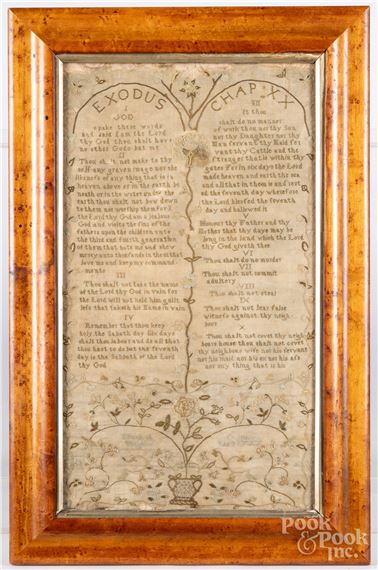 EXODUS CHAP: XX
I
GOD
spake these words
and said I am the Lord
thy God thou shalt have
no other Gods but me
II
Thou shalt not make to thy
self any graven image nor the
likeness of any thing that is in
heaven above or in the earth be
neath or in the water under the
earth thou shalt not bow down
to them nor worship them for I
the Lord thy God am a jealous
God and visits the sins of the
fathers upon the children unto
the third and fourth generation
of them that hate me and shew
mercy unto thousands in them that
love me and keep my command
ments
III
Thou shalt not take the name
of the Lord thy God in vain for
the Lord will not hold him guilt
less that taketh his Name in vain
IV
Remember that thou keep
holy the Sabath day Six days
shalt thou labour and do all that
thou hast to do but the seventh
day is the Sabbath of the Lord
thy God
It thou
shalt do no manner
of work thou nor thy Son
nor thy Daughter nor thy
Man servant thy Maid ser
vant thy Cattle and the
stranger that is within thy
gates For in six days the Lord
made heaven and earth the sea
and all that in them is and rest
ed the seventh day wherefore
the Lord blessed the seventh
day and hallowed it
V
Honour thy Father and thy
Mother that thy days may be
long in the land which the Lord
thy God giveth thee
VI
Thou shalt do no murder
VII
Thou shalt not commit
adultery
VIII
Thou shalt not steal
IX
Thou shalt not bear false
witness against thy neigh
bour
X
Thou shalt not covet thy neigh
bours house thou shalt not covet
thy neighbours wife nor his servant
nor his maid nor his ox nor his ass
nor any thing that is his
POOK
& POOK
Inc.